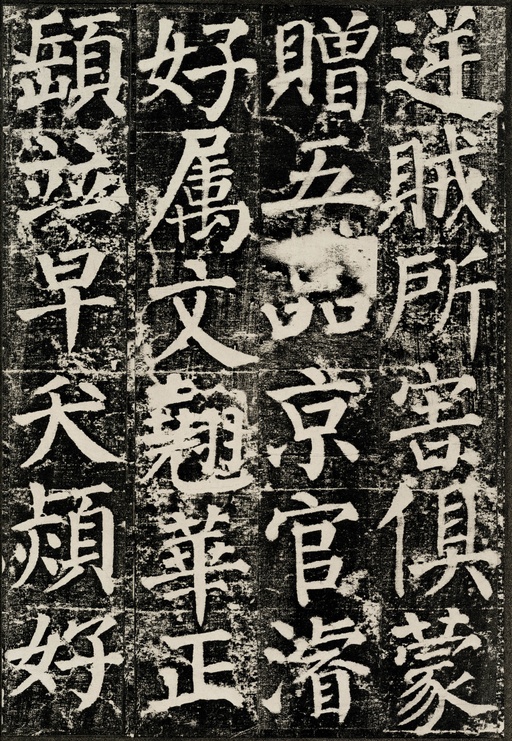 逆賊所害俱蒙
贈五品京官濬
好属文翹華正
顗並早夭熲好